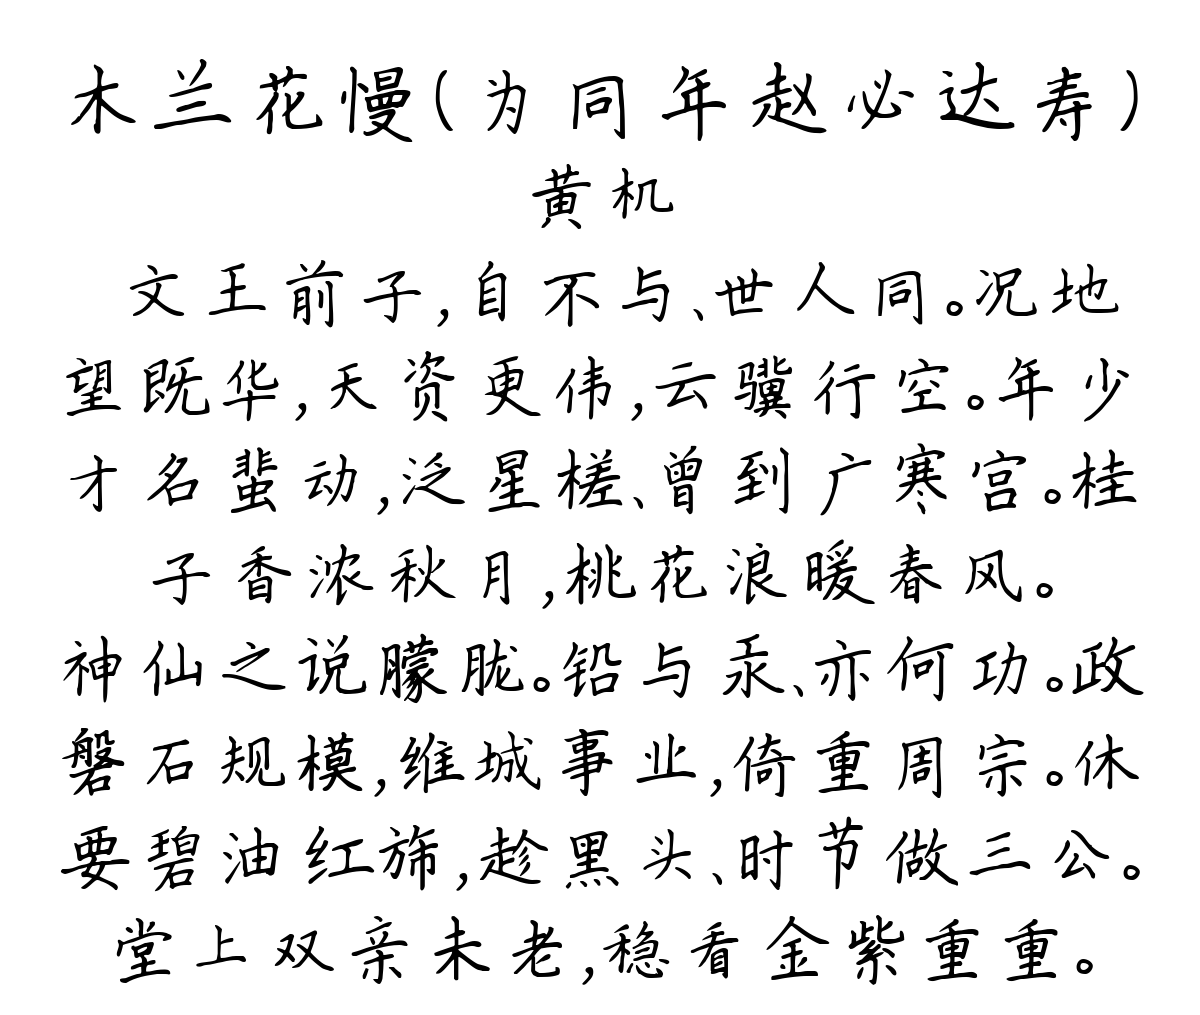 木兰花慢(为同年赵必达寿)
黄机
文王前子,自不与、世人同。况地
望既华,天资更伟,云骥行空。年少
才名蜚动,泛星槎、曾到广寒宫。桂
子香浓秋月,桃花浪暖春风。
神仙之说朦胧。铅与汞、亦何功。政
磐石规模,维城事业,倚重周宗。休
要碧油红旆,趁黑头、时节做三公。
堂上双亲未老,稳看金紫重重。